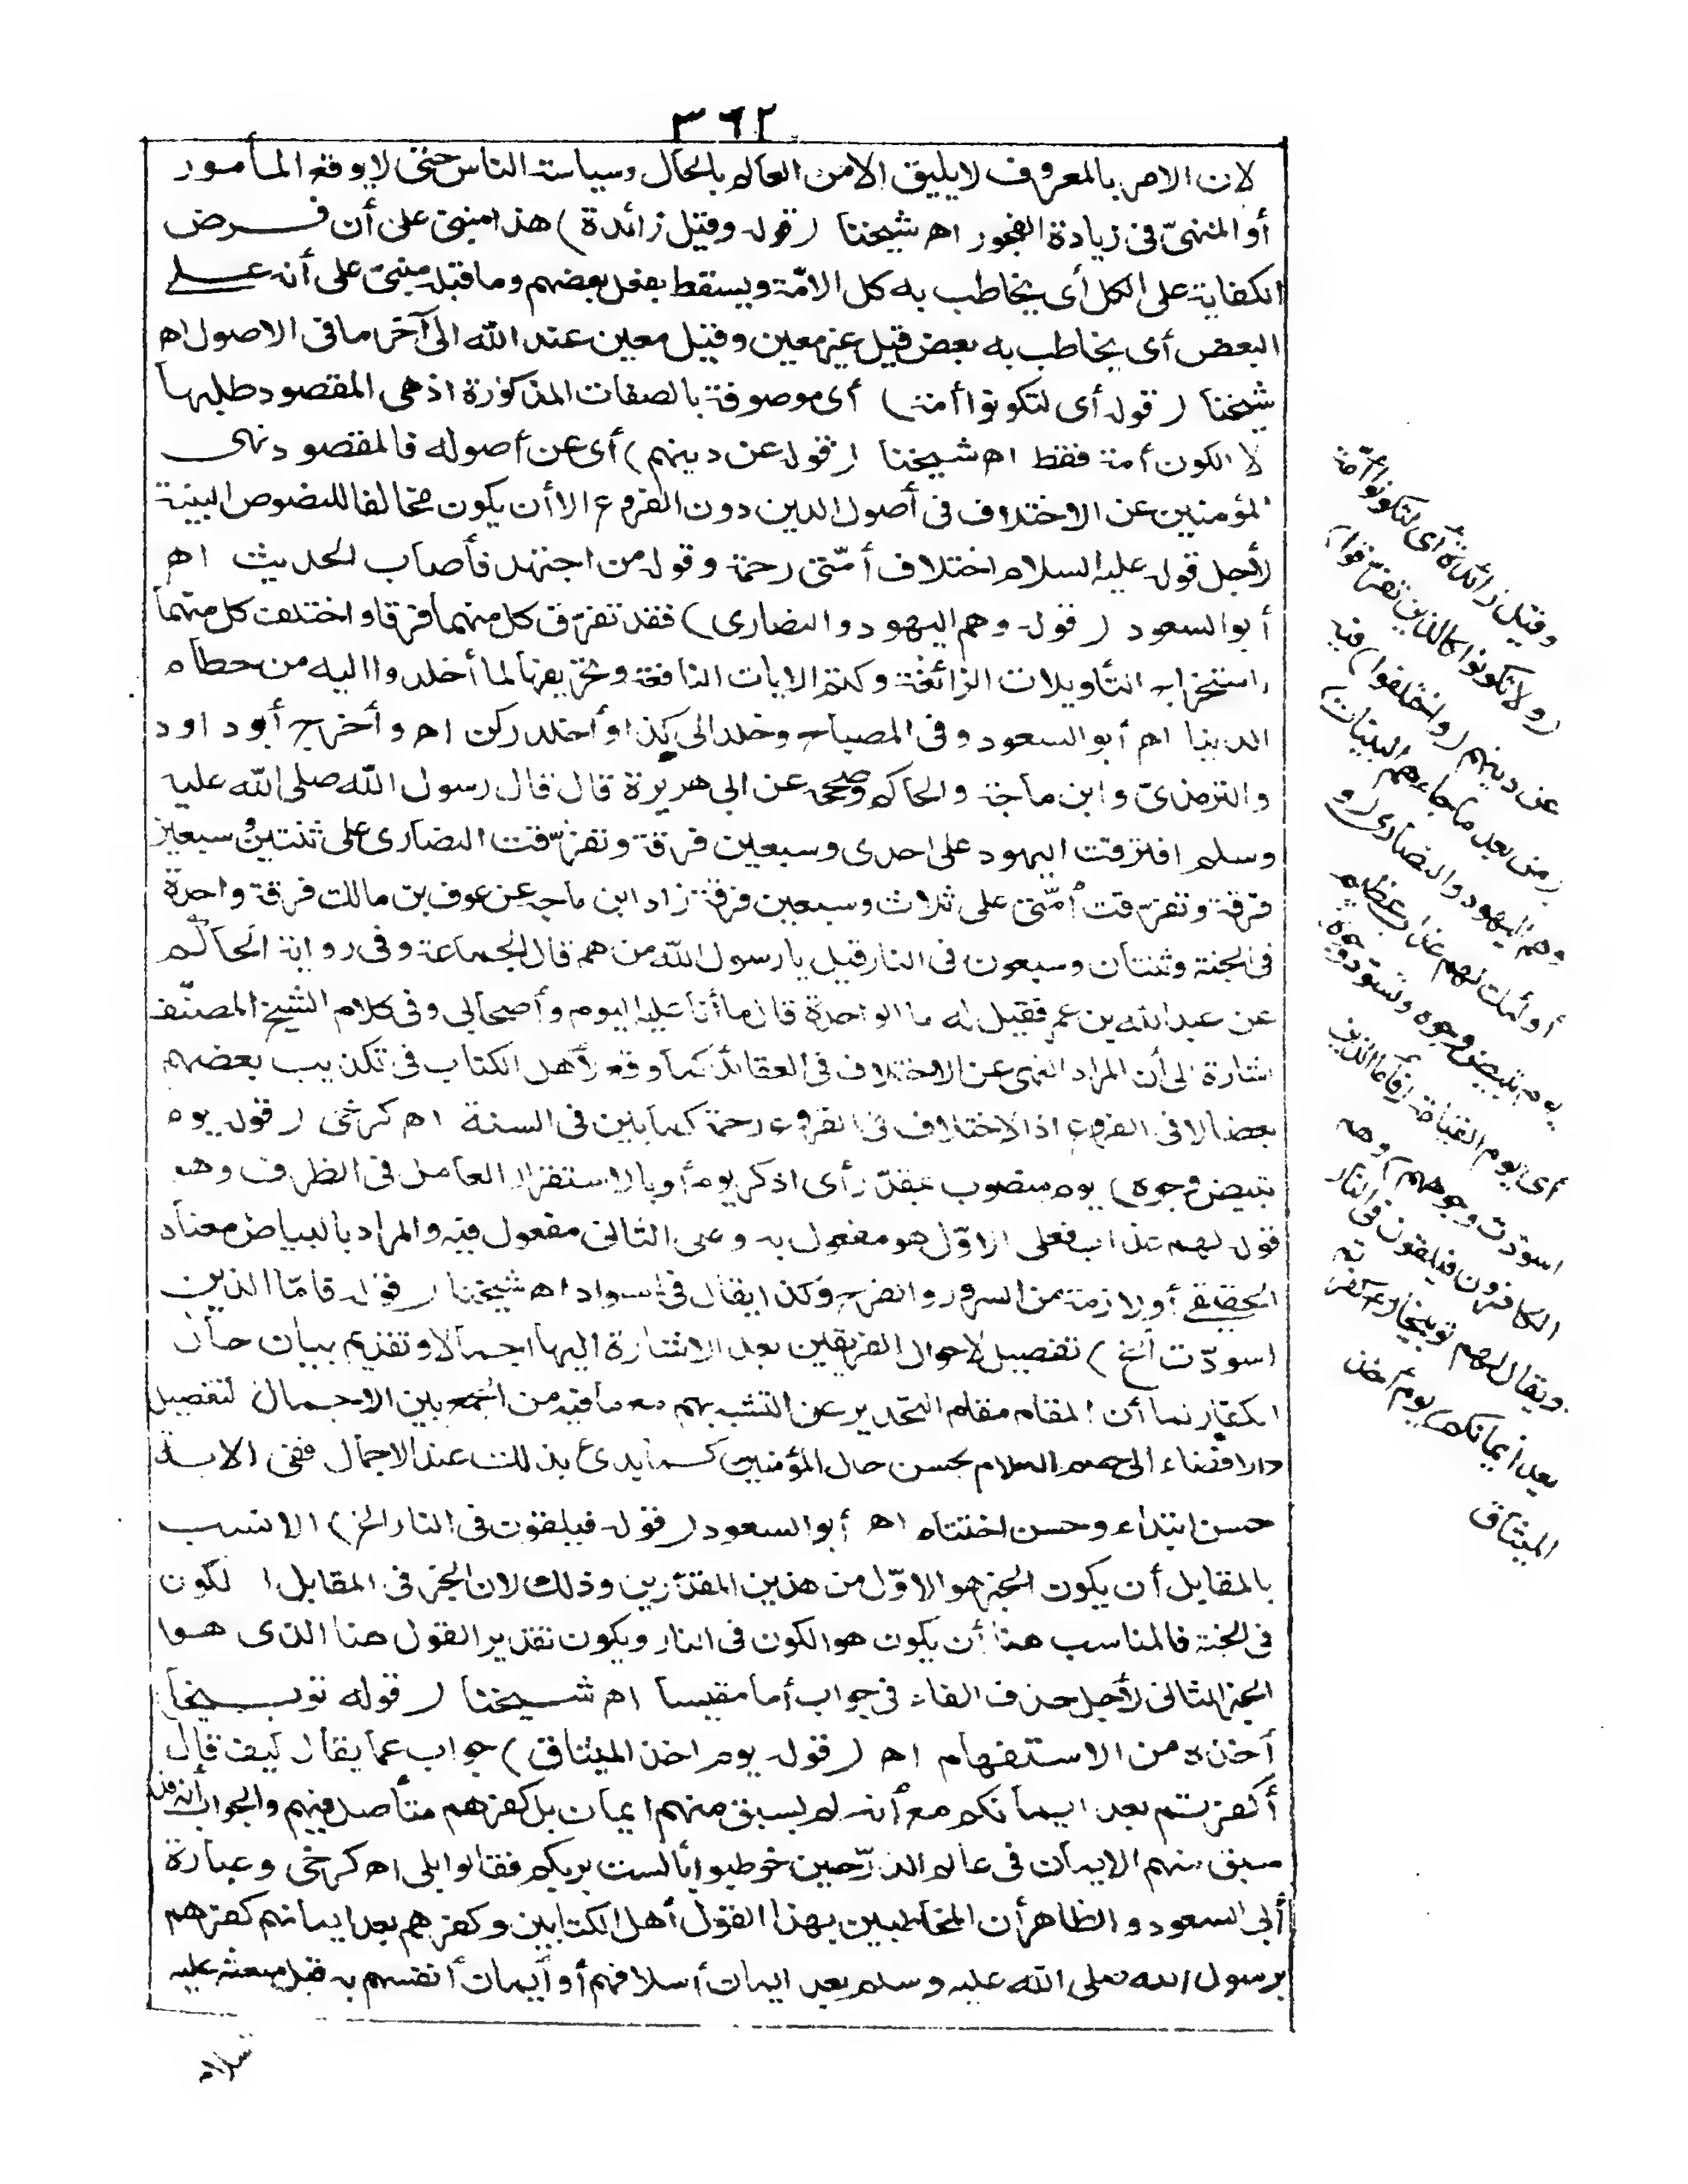 ٣٦٢
لان الامر بالمعروف لا يليق الا من العالم بالحال وسياسة الناس حتى لا يوقع المأمور
أو المنهىّ فى زيادة الفجور اه شيخنا (قوله وقيل زائدة) هذا مبنى على أن فرض
الكفاية على الكل أى يخاطب به كل الامّة ويسقط بفعل بعضهم وما قبله مبنىّ على أنه على
البعض أى يخاطب به بعض قيل غير معين وقيل معين عند الله الى آخر ما فى الاصول اه
شيخنا (قوله أى لتكونوا أمة) أى موصوفة بالصفات المذكورة اذ هى المقصود طلبها
لا الكون أمة فقط اه شيخنا (قوله عن دينهم) أى عن أصوله فالمقصود نهى
المؤمنين عن الاختلاف فى أصول الدين دون الفروع الا أن يكون مخالفا للنصوص البينة
لأجل قوله عليه السلام اختلاف أمّتى رحمة وقوله من اجتهد فأصاب الحديث اه
أبو السعود (قوله وهم اليهود والنصارى) فقد تفرّق كل منهما فرقا واختلف كل منهما
استخراج التأويلات الزائغة وكتم الايات النافعة وتحريفها لما أخلدوا اليه من حطام
الدنيا اه أبو السعود وفى المصباح وخلد الى كذا وأخلد ركن اه وأخرج أبو داود
والترمذىّ وابن ماجة والحاكم وصححه عن ابى هريرة قال قال رسول الله صلى الله عليه
وسلم افترقت اليهود على احدى وسبعين فرقة وتفرّقت النصارى على ثنتين وسبعين
فرقة وتفرّقت أمّتى على ثلاث وسبعين فرقة زاد ابن ماجه عن عوف بن مالك فرقة واحدة
فى الجنة وثنتان وسبعون فى النار قيل يا رسول الله من هم قال الجماعة وفى رواية الحاكم
عن عبد الله بن عمر فقيل له ما الواحدة قال ما أنا عليه اليوم وأصحابى وفى كلام الشيخ المصنّف
اشارة الى أن المراد النهى عن الاختلاف فى العقائد كما وقع لأهل الكتاب فى تكذيب بعضهم
بعضا لا فى الفروع اذ الاختلاف فى الفروع رحمة كما بين فى السنة اه كرخى (قوله يوم
تبيض وجوه) يوم منصوب بمقدّر أى اذكر يوم أو بالاستقرار العامل فى الظرف وهو
قوله لهم عذاب فعلى الاوّل هو مفعول به وعلى الثانى مفعول فيه والمراد بالبياض معناه
الحقيقى أو لازمه من السرور والفرح وكذا يقال فى السواد اه شيخنا (قوله فامّا الذين
اسودّت الخ) تفصيل لاحوال الفريقين بعد الاشارة اليها اجمالا وتقديم بيان حال
الكفار لما أن المقام مقام التحذير عن التشبه بهم مع ما فيه من الجمع بين الاجمال لتفصيل
والافضاء الى ختم الكلام بحسن حال المؤمنين كما بدئ بذلك عند الاجمال ففى الاية
حسن ابتداء وحسن اختتام اه أبو السعود (قوله فيلقون فى النار الخ) الانسب
بالمقابل أن يكون الخبر هو الاوّل من هذين المقدّرين وذلك لان الخبر فى المقابل الكون
فى الجنة فالمناسب هنا أن يكون هو الكون فى النار ويكون تقدير القول هنا الذى هو
الخبر الثانى لأجل حذف الفاء فى جواب أما مقيسا اه شيخنا (قوله توبيخا)
أخذه من الاستفهام اه (قوله يوم اخذ الميثاق) جواب عما يقال كيف قال
أكفرتم بعد ايمانكم مع أنه لم يسبق منهم ايمان بل كفرهم متأصل فيهم والجواب أنه قد
سبق منهم الايمان فى عالم الذرّ حين خوطبوا بألست بربكم فقالوا بلى اه كرخى وعبارة
أبى السعود والظاهر أن المخاطبين بهذا القول أهل الكتابين وكفرهم بعد ايمانهم كفرهم
برسول الله صلى الله عليه وسلم بعد ايمان أسلافهم أو ايمان أنفسهم به قبل مبعثه عليه
سلام
وقيل زائدة أى لتكونوا أمّة
(ولا تكونوا كالذين تفرّقوا)
عن دينهم (واختلفوا) فيه
(من بعد ما جاءهم البينات)
وهم اليهود والنصارى (و
أولئك لهم عذاب عظيم
يوم تبيض وجوه وتسودّ وجوه)
أى يوم القيامة (فأما الذين
اسودّت وجوههم) وهم
الكافرون فيلقون فى النار
ويقال لهم توبيخا (أكفرتم
بعد ايمانكم) يوم أخذ
الميثاق